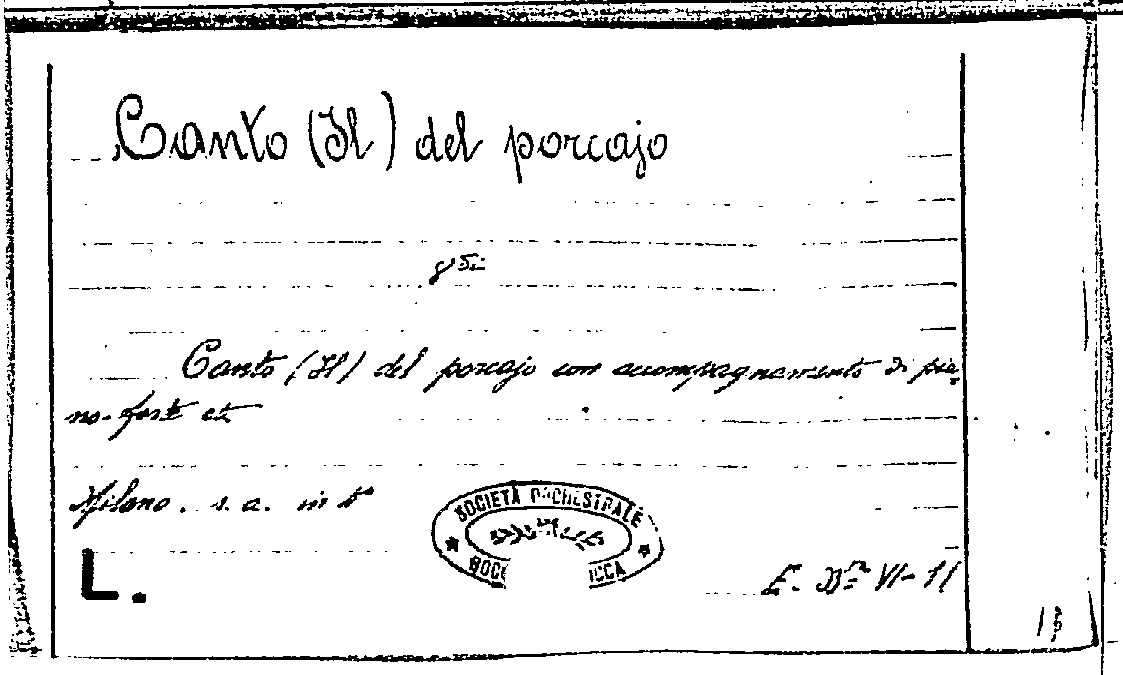 Canto (Il) del porcajo
Canto (Il) del porcajo con accompagnamento di pia-
no-forte etc
Milano. s. a. in
SOCIETÀ ORCHESTRALE
BOCC ICCA
L.
E. VI-11
13